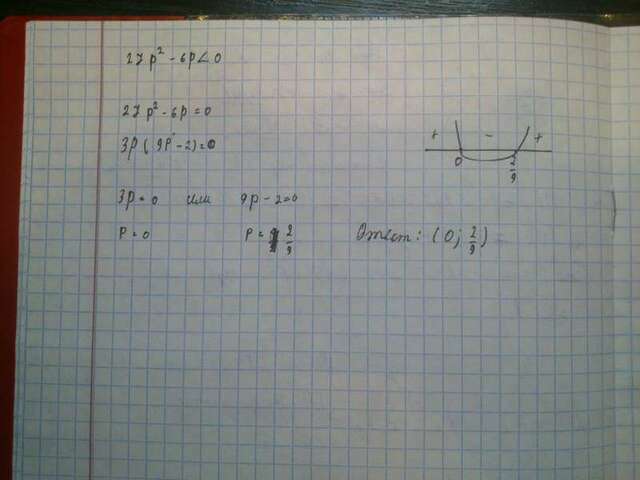 27p² - 6p < 0
27p² - 6p = 0
3p(9p - 2) = 0
+ - +
0 2/9
3p = 0 или 9p - 2 = 0
p = 0 p = 2/9 Ответ: (0; 2/9)